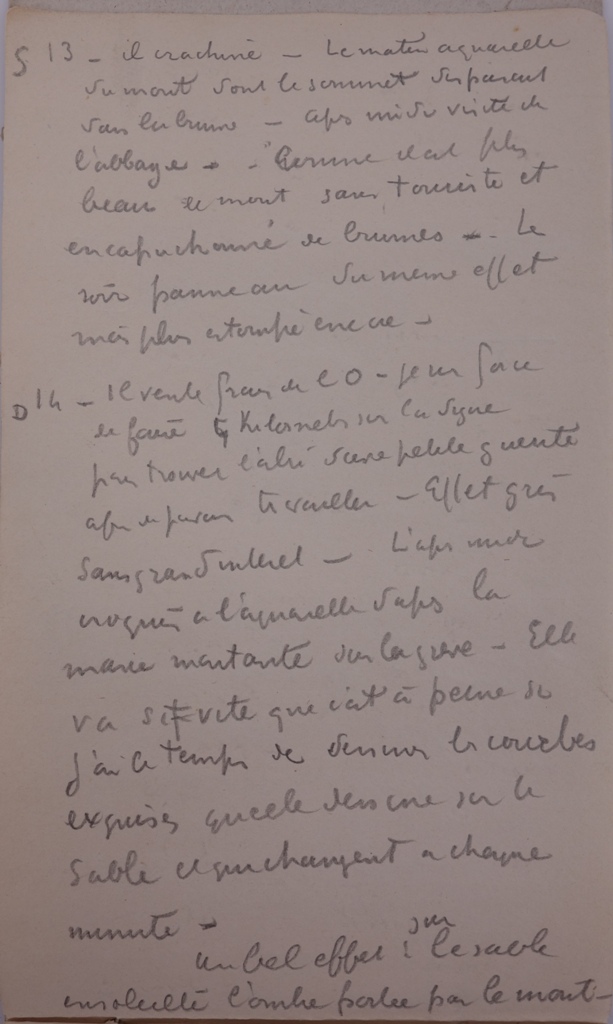 S 13 - il crachine - Le matin aquarelle
du mont dont le sommet disparait
dans la brume - apres midi visite de
l'abbaye - Comme il est plus
beau le mont sans touriste et
encapuchonné de brumes - Le
soir panneau du meme effet
mais plus estompé encore -
D 14 - Il vente grand de l'O - je me force
de faire 4 Kilometres sur la digue
pour trouver l'abri d'une petite guerite
afin de pouvoir travailler - Effet gris
sans grand interet - L'apres midi
croquis a l'aquarelle d'apres la
maree montante sur la greve - Elle
va si vite que c'est à peine si
j'ai le temps de dessiner les courbes
exquises qu'elle dessine sur le
sable et qui changent a chaque
minute -
un bel effet : sur le sable
ensoleillé l'ombre portée par le mont -